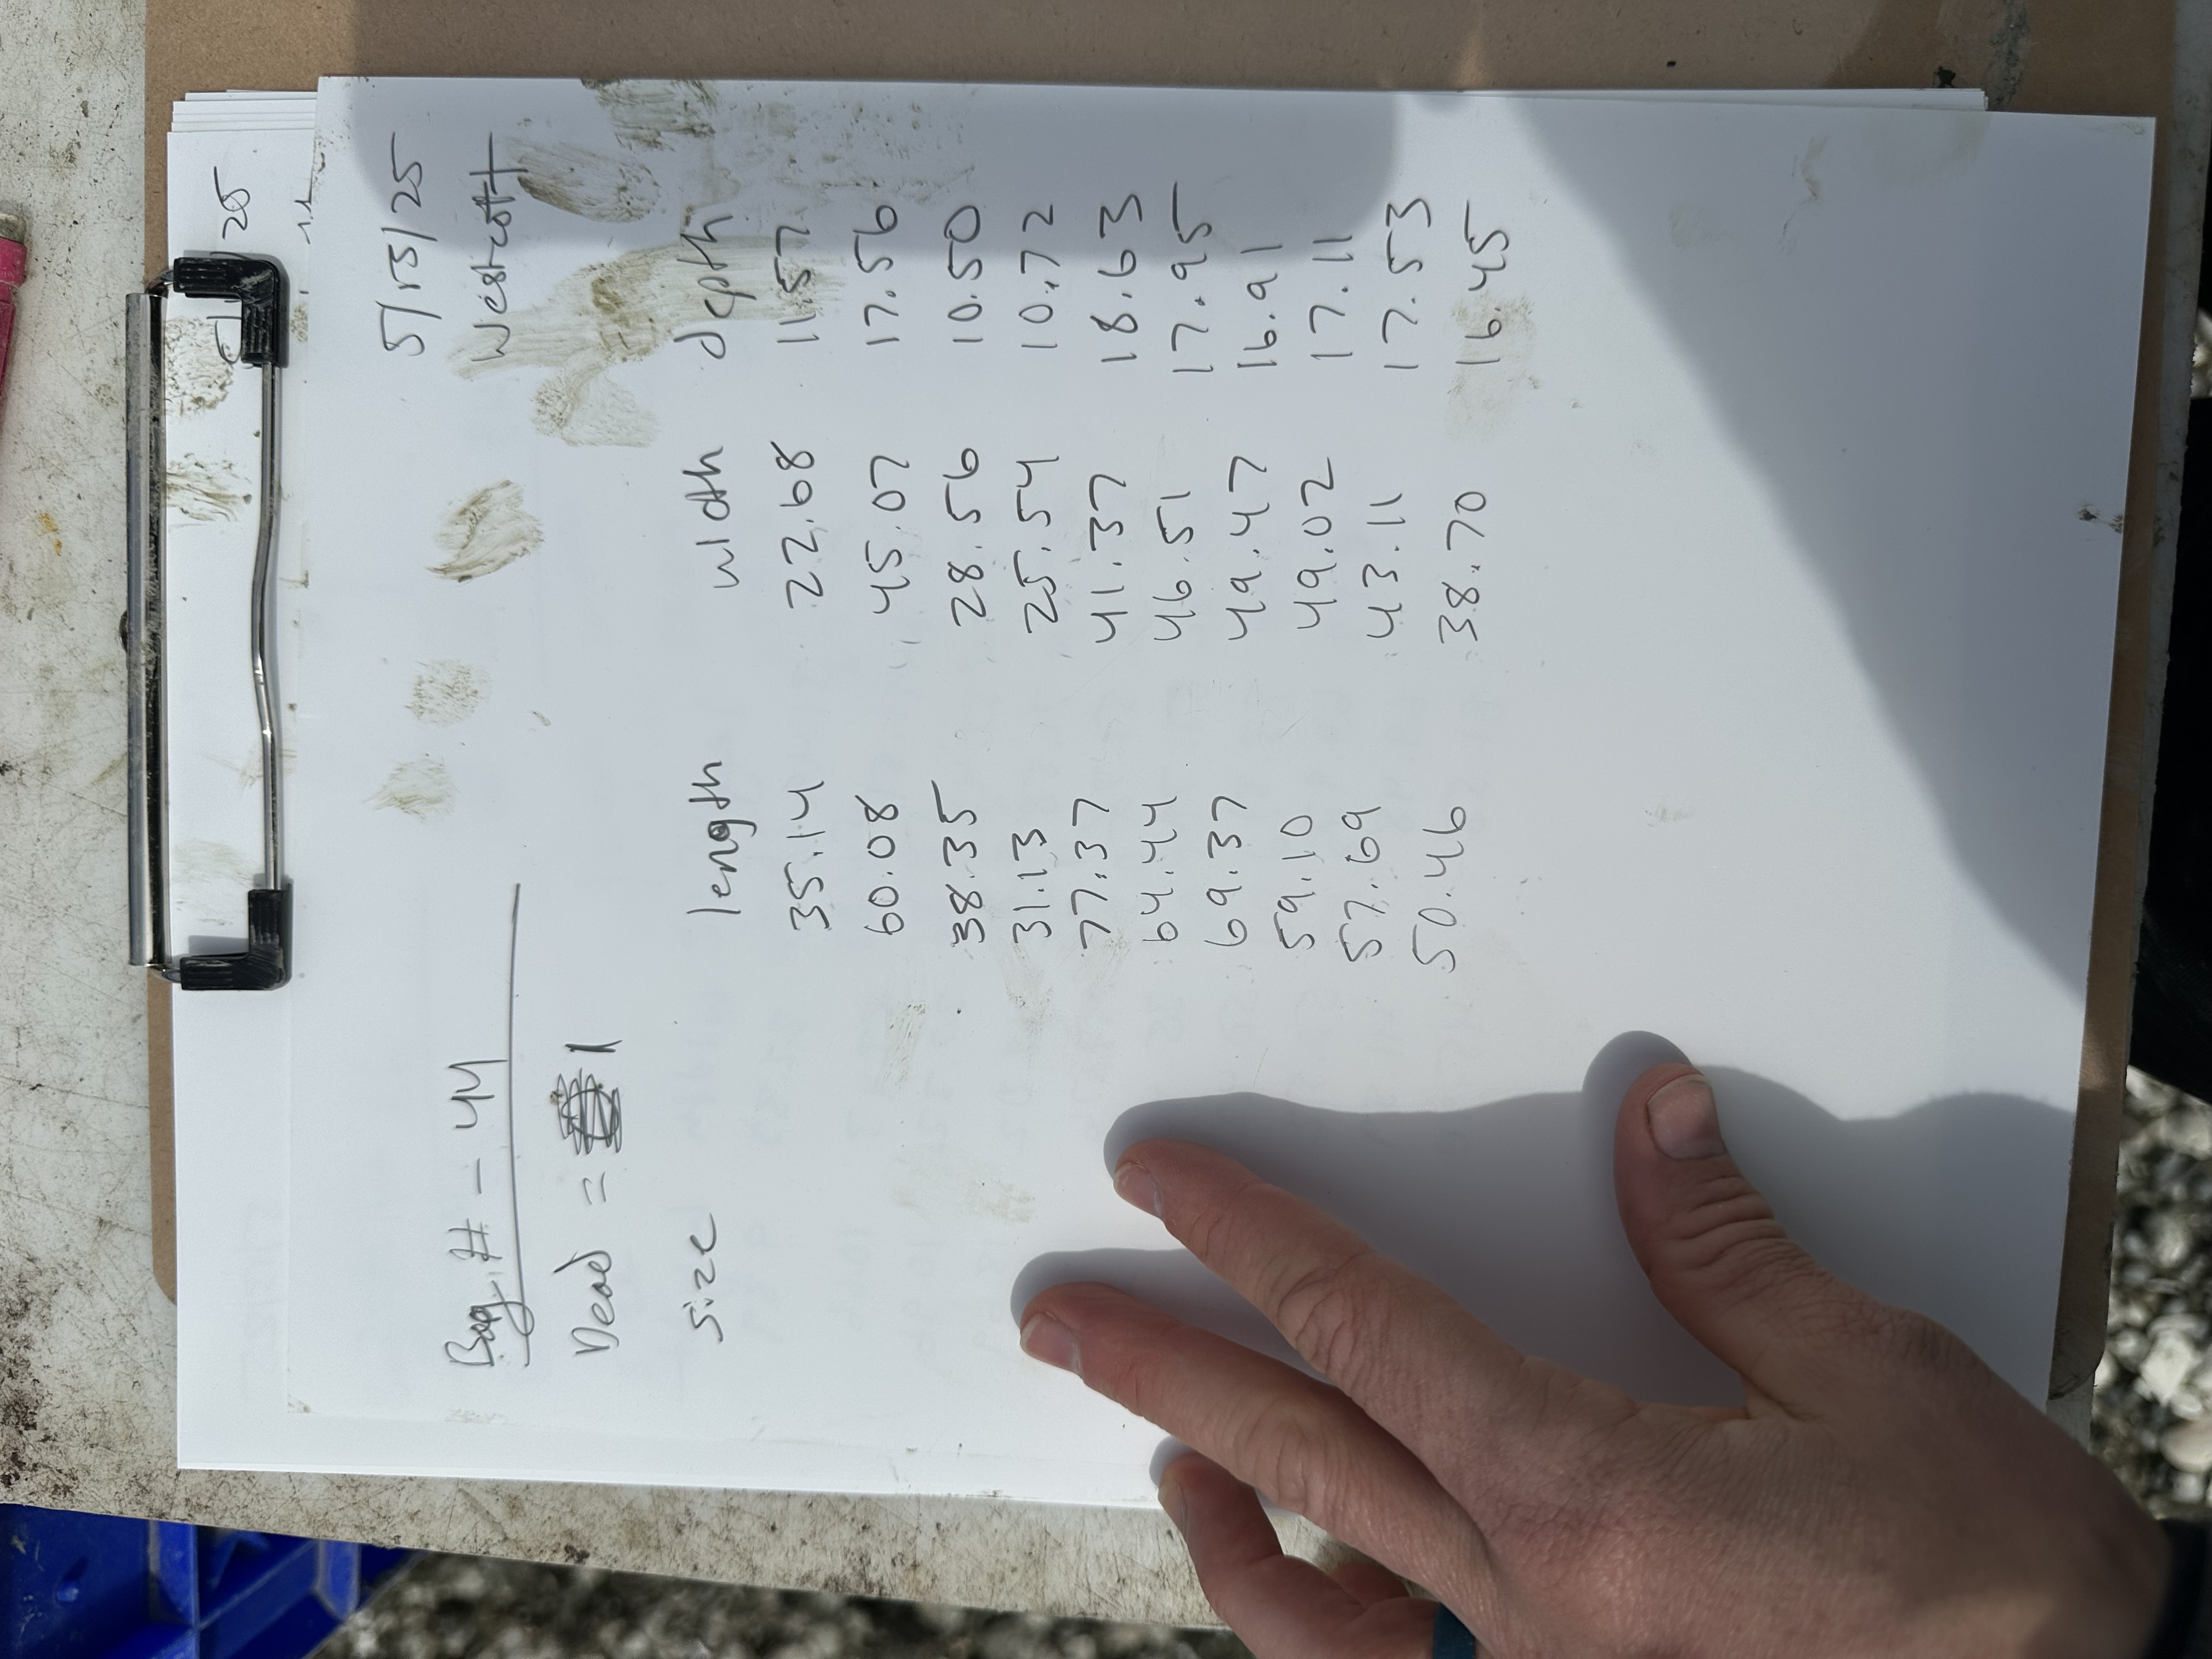 25
5/15/25
Westcott
Bag # - 44
Dead = 1
size length width depth
35.14 22.68 11.57
60.08 45.07 17.56
38.35 28.56 10.50
31.13 25.54 10.72
77.37 41.37 18.63
64.44 46.51 17.95
69.37 49.47 16.91
59.10 49.02 17.11
57.69 43.11 17.53
50.46 38.70 16.45